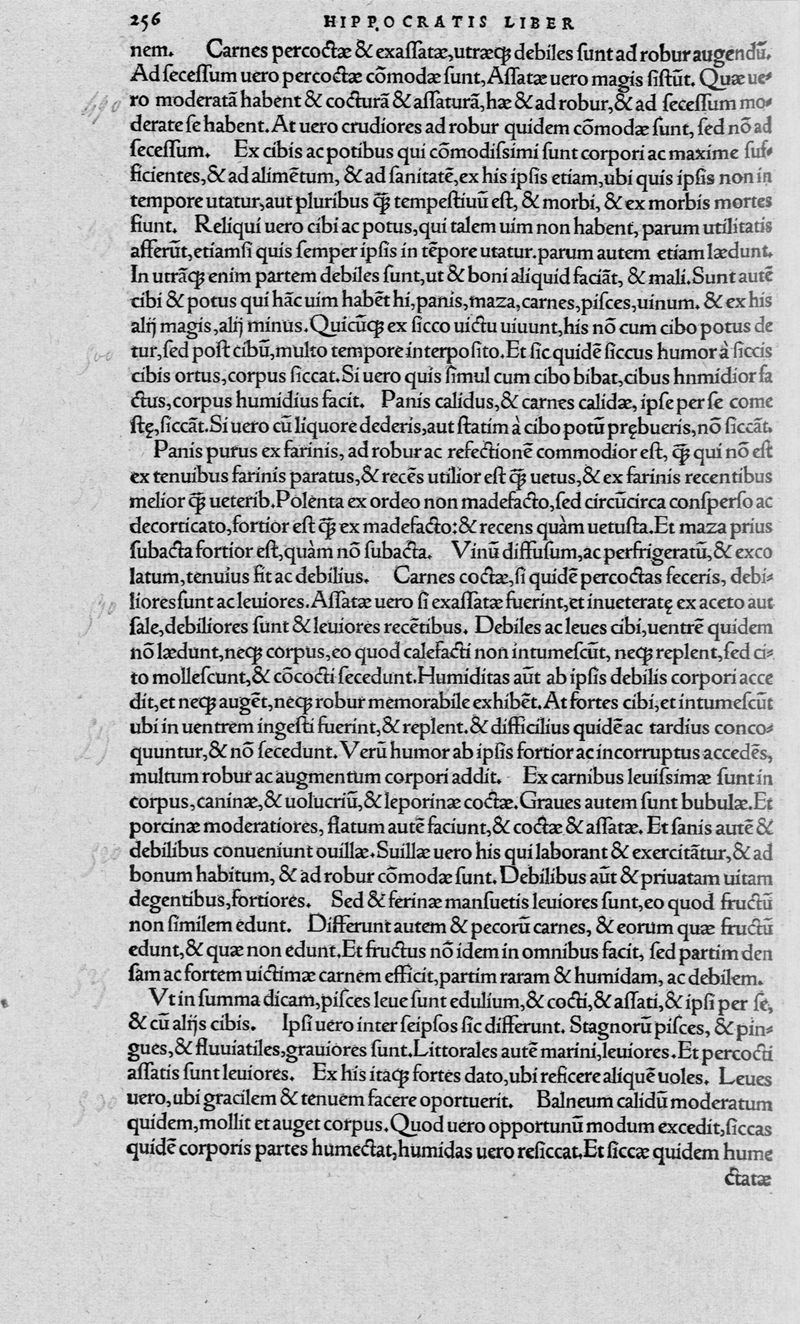 256 HIPPOCRATIS LIBER
nem. Carnes percoctæ & exaſſatæ,utræq̃ debiles ſunt ad robur augendũ.
Ad ſeceſſum uero percoctæ cõmodæ ſunt,Aſſatæ uero magis ſiſtũt. Quæ ue⸗
ro moderatã habent & cocturã & aſſaturã,hæ & ad robur,& ad ſeceſſum mo⸗
derate ſe habent.At uero crudiores ad robur quidem cõmodæ ſunt, ſed nõ ad
ſeceſſum. Ex cibis ac potibus qui cõmodiſsimi ſunt corpori ac maxime ſuf⸗
ficientes,& ad alimẽtum, & ad ſanitatẽ,ex his ipſis etiam,ubi quis ipſis non in
tempore utatur,aut pluribus q̃ꝫ tempeſtiuũ eſt, & morbi, & ex morbis mortes
fiunt. Reliqui uero cibi ac potus,qui talem uim non habent, parum utilitatis
afferũt,etiamſi quis ſemper ipſis in tẽpore utatur.parum autem etiam lædunt.
In utrãq̃ enim partem debiles ſunt,ut & boni aliquid faciãt, & mali.Sunt autẽ
cibi & potus qui hãc uim habẽt hi,panis,maza,carnes,piſces,uinum. & ex his
alij magis,alij minus.Quicũq̃ ex ſicco uictu uiuunt,his nõ cum cibo potus de
tur,ſed poſt cibũ,multo tempore interpoſito.Et ſic quidẽ ſiccus humor à ſiccis
cibis ortus,corpus ſiccat.Si uero quis ſimul cum cibo bibat,cibus hnmidior fa
ctus,corpus humidius facit. Panis calidus,& carnes calidæ, ipſe per ſe come
ſtę,ſiccãt.Si uero cũ liquore dederis,aut ſtatim à cibo potũ prębueris,nõ ſiccãt.
Panis purus ex farinis, ad robur ac refectionẽ commodior eſt, q̃ꝫ qui nõ eſt
ex tenuibus farinis paratus,& recẽs utilior eſt q̃ꝫ uetus,& ex farinis recentibus
melior q̃ꝫ ueterib.Polenta ex ordeo non madefacto,ſed circũcirca conſperſo ac
decorticato,fortior eſt q̃ꝫ ex madefacto:& recens quàm uetuſta.Et maza prius
ſubacta fortior eſt,quàm nõ ſubacta. Vinũ diffuſum,ac perfrigeratũ,& exco
latum,tenuius fit ac debilius. Carnes coctæ,ſi quidẽ percoctas feceris, debi⸗
liores ſunt ac leuiores.Aſſatæ uero ſi exaſſatæ fuerint,et inueteratę ex aceto aut
ſale,debiliores ſunt & leuiores recẽtibus. Debiles ac leues cibi,uentrẽ quidem
nõ lædunt,neq̃ corpus,eo quod calefacti non intumeſcũt, neq̃ replent,ſed ci⸗
to molleſcunt,& cõcocti ſecedunt.Humiditas aũt ab ipſis debilis corpori acce
dit,et neq̃ augẽt,neq̃ robur memorabile exhibẽt.At fortes cibi,et intumeſcũt
ubi in uentrem ingeſti fuerint,& replent.& difficilius quidẽ ac tardius conco⸗
quuntur,& nõ ſecedunt.Verũ humor ab ipſis fortior ac incorruptus accedẽs,
multum robur ac augmentum corpori addit. Ex carnibus leuiſsimæ ſunt in
corpus,caninæ,& uolucriũ,& leporinæ coctæ.Graues autem ſunt bubulæ.Et
porcinæ moderatiores, flatum autẽ faciunt,& coctæ & aſſatæ. Et ſanis autẽ &
debilibus conueniunt ouillæ.Suillæ uero his qui laborant & exercitãtur,& ad
bonum habitum, & ad robur cõmodæ ſunt.Debilibus aũt & priuatam uitam
degentibus,fortiores. Sed & ferinæ manſuetis leuiores ſunt,eo quod fructũ
non ſimilem edunt. Differunt autem & pecorũ carnes, & eorum quæ fructũ
edunt,& quæ non edunt.Et fructus nõ idem in omnibus facit, ſed partim den
ſam ac fortem uictimæ carnem efficit,partim raram & humidam, ac debilem.
Vt in ſumma dicam,piſces leue ſunt edulium,& cocti,& aſſati,& ipſi per ſe,
& cũ alijs cibis. Ipſi uero inter ſeipſos ſic differunt. Stagnorũ piſces, & pin⸗
gues,& fluuiatiles,grauiores ſunt.Littorales autẽ marini,leuiores.Et percocti
aſſatis ſunt leuiores. Ex his itaq̃ fortes dato,ubi reficere aliquẽ uoles. Leues
uero,ubi gracilem & tenuem facere oportuerit. Balneum calidũ moderatum
quidem,mollit et auget corpus.Quod uero opportunũ modum excedit,ſiccas
quidẽ corporis partes humectat,humidas uero reſiccat.Et ſiccæ quidem hume
ctatæ